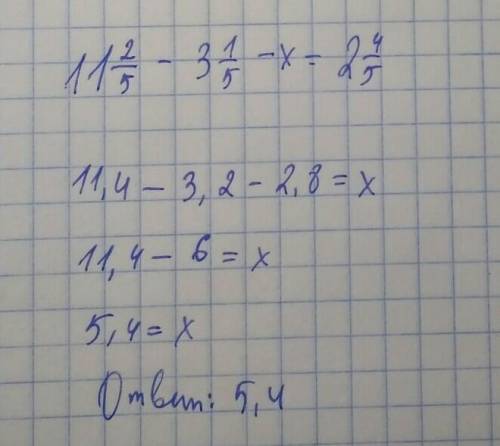 11 2/5 - 3 1/5 - x = 2 4/5
11,4 - 3,2 - 2,8 = x
11,4 - 6 = x
5,4 = x
Ответ: 5,4